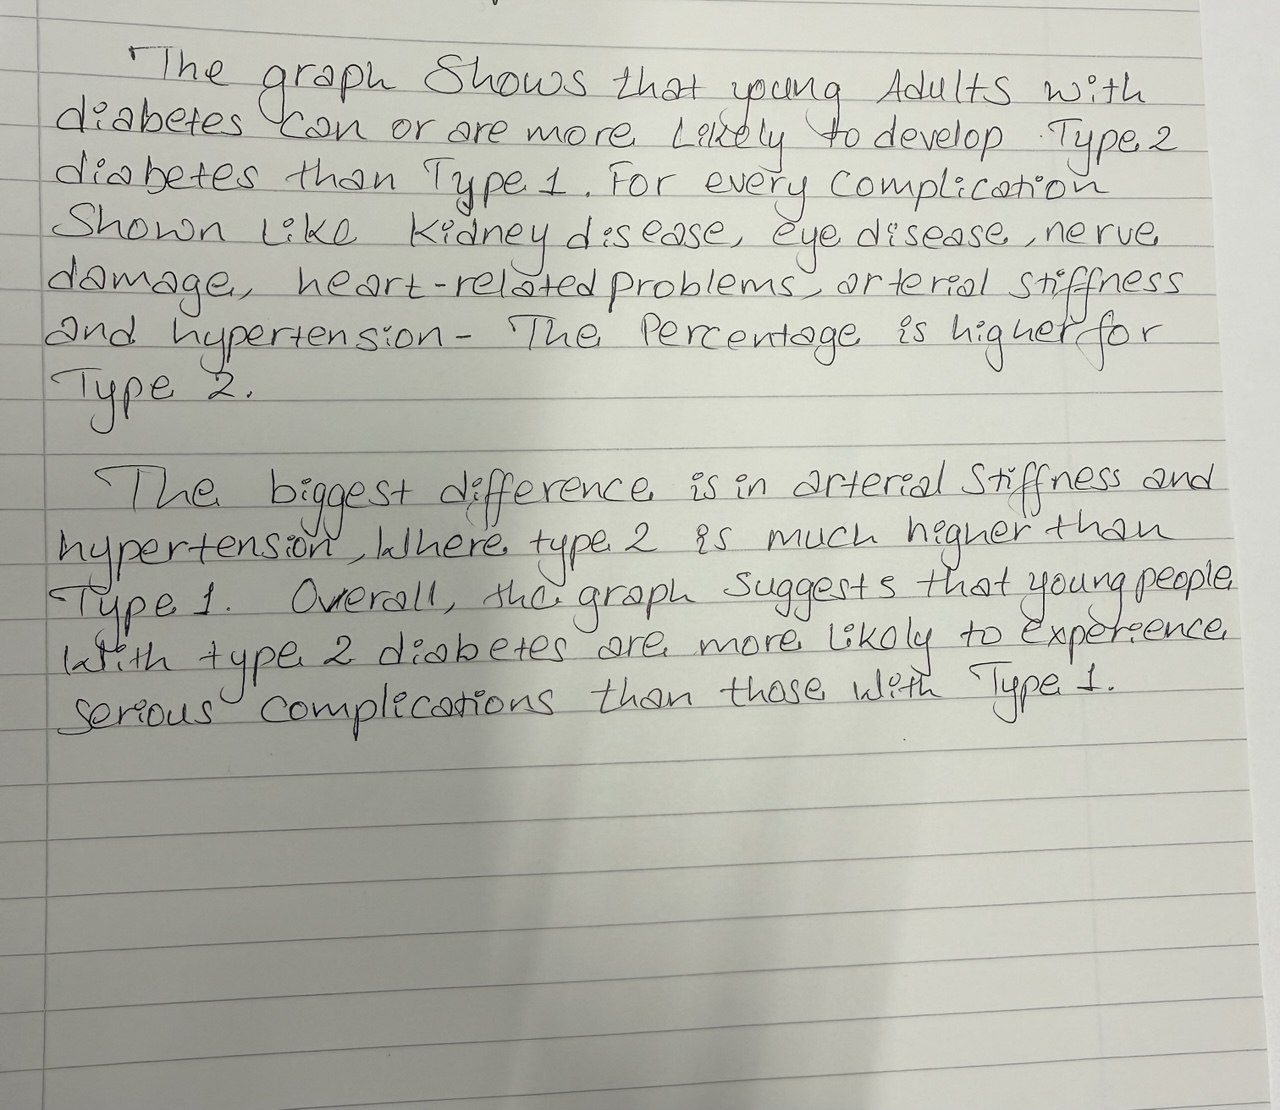 The graph Shows that young Adults with
diabetes can or are more Likely to develop Type 2
diabetes than Type 1. For every Complication
Shown Like Kidney disease, eye disease, nerve
damage, heart-related problems, arterial stiffness
and hypertension- The Percentage is higher for
Type 2.
The biggest difference is in arterial Stiffness and
hypertension, Where type 2 is much higher than
Type 1. Overall, the graph suggests that young people
With type 2 diabetes are more likely to experience
serious complications than those With Type 1.